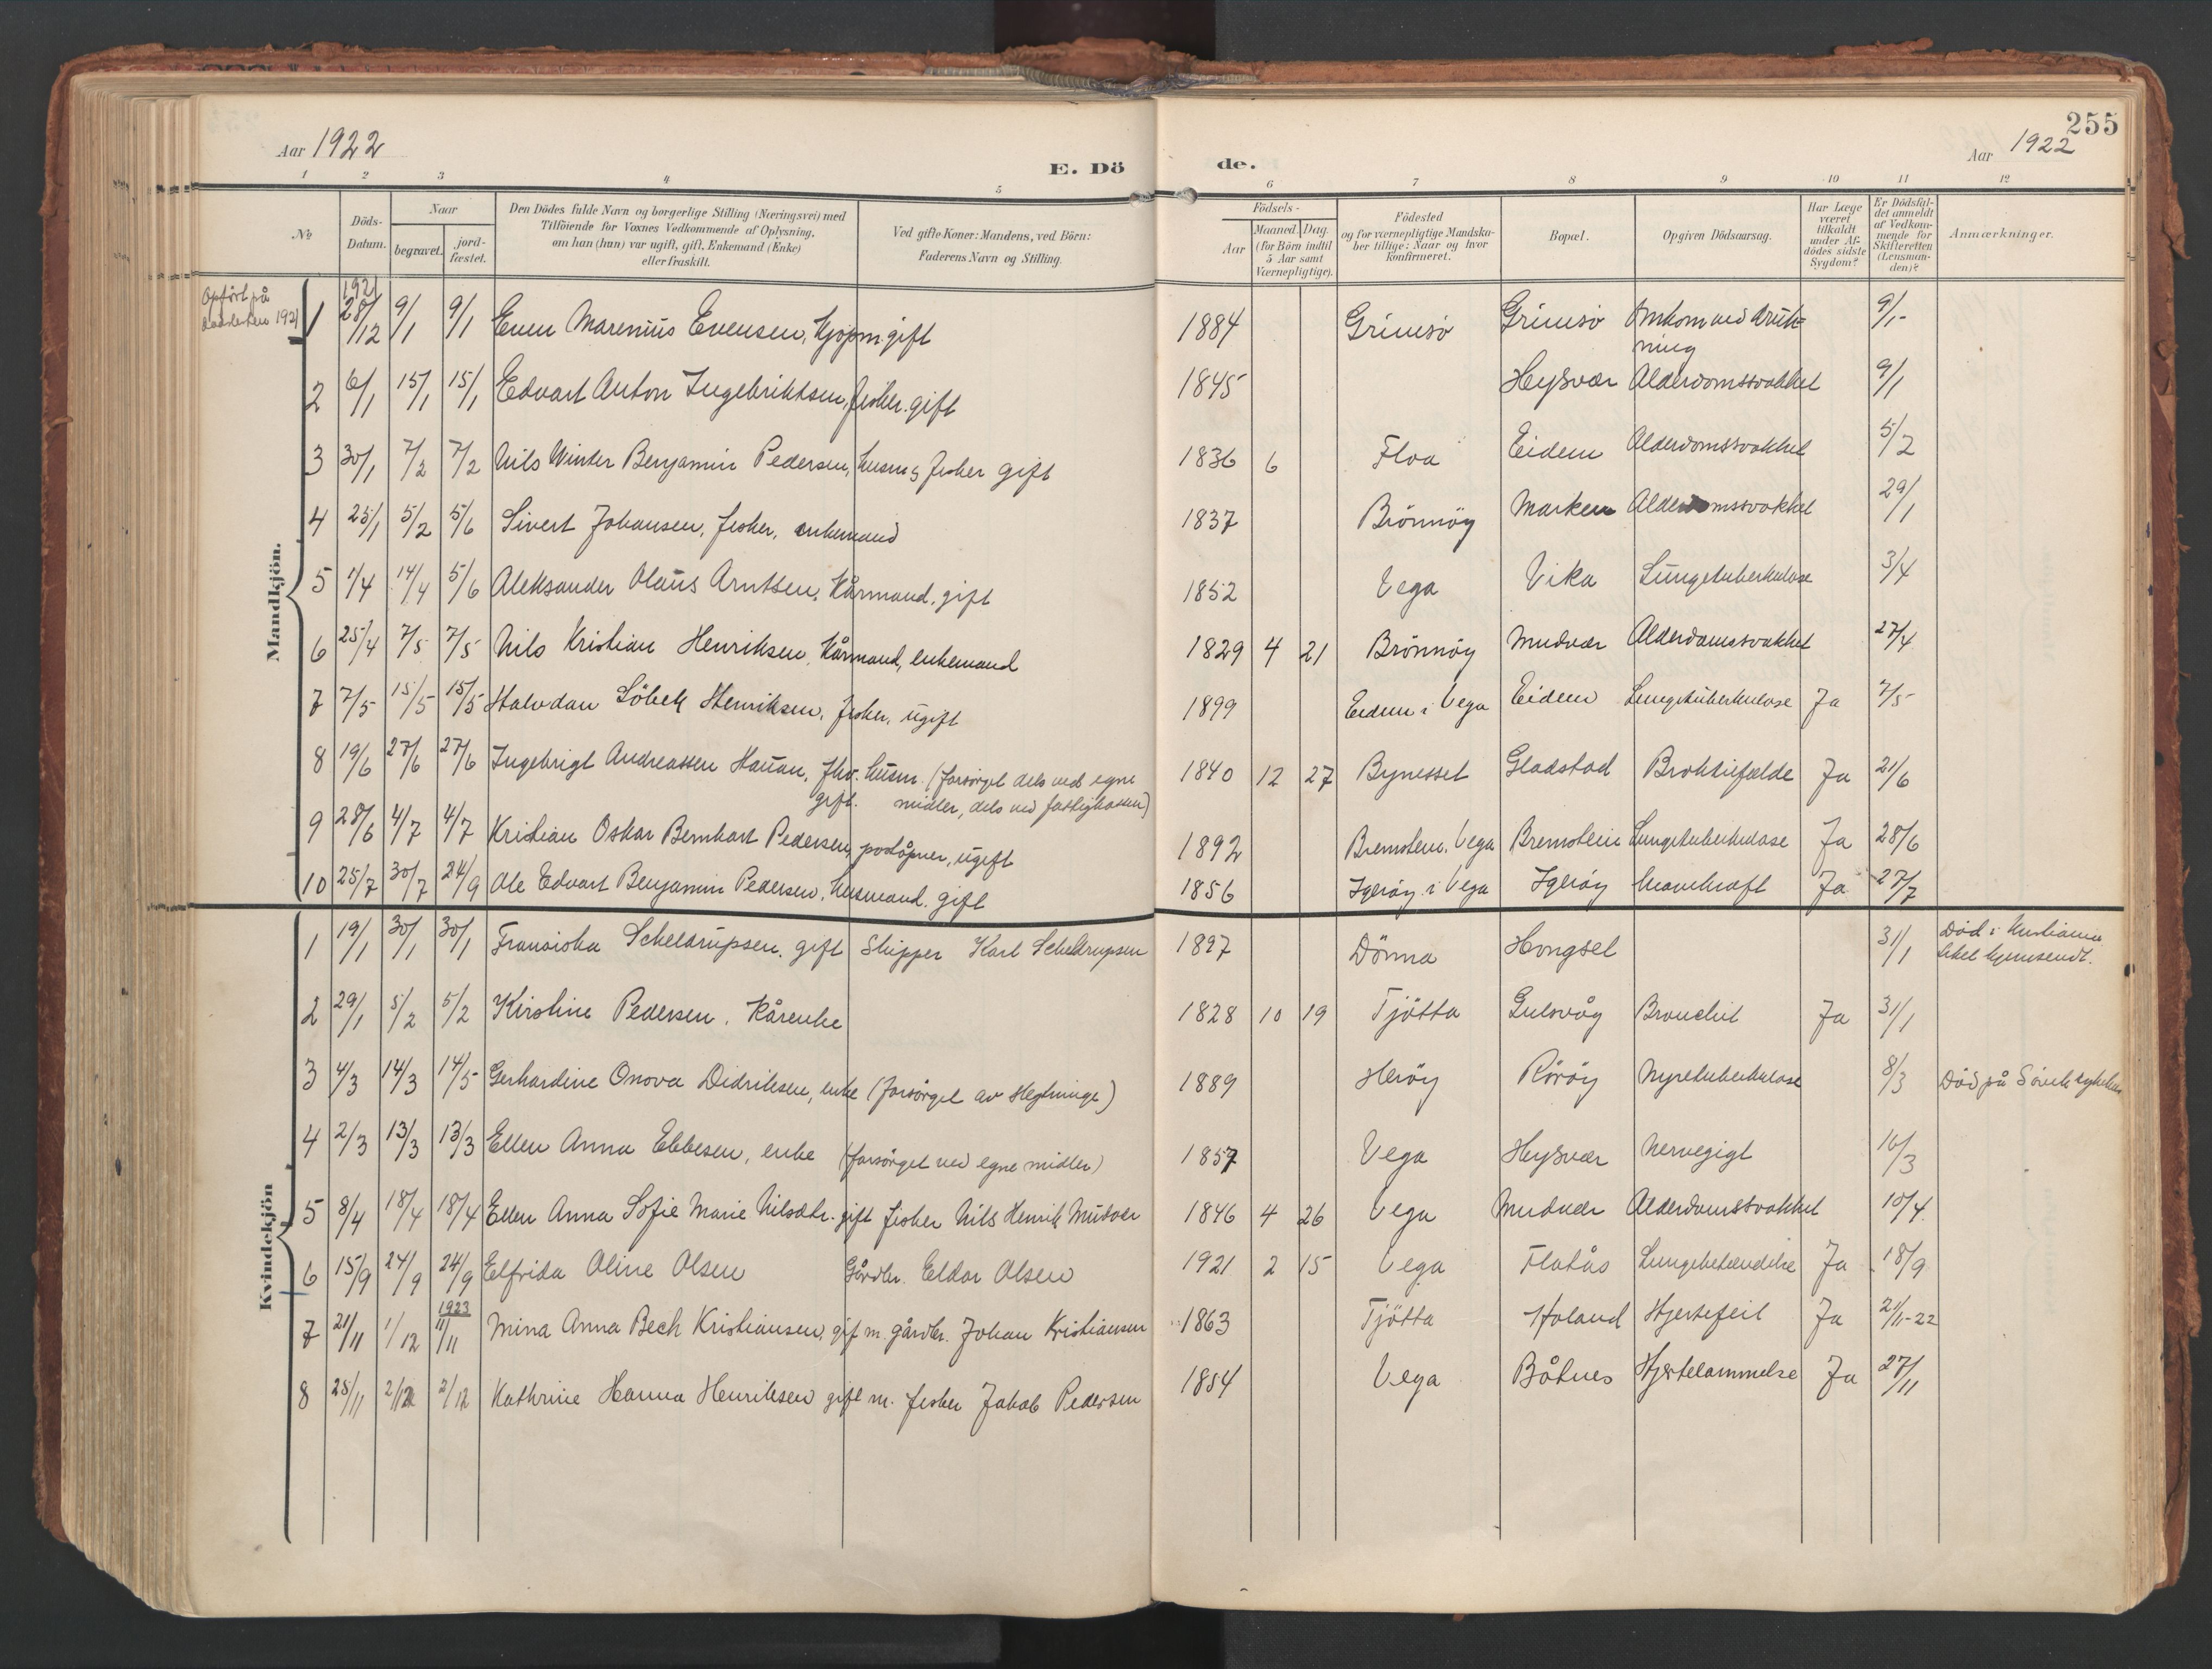 255
Aar 1922
E. Dö
de.
Aar 1922
1 2 3 4 5 6 7 8 9 10 11 12
№
Döds-Datum.
Naar
begravet.
jord-fæstet.
Den Dödes fulde Navn og borgerlige Stilling (Næringsvei) med
Tilföiende for Voxnes Vedkommende af Oplysning,
om han (hun) var ugift, gift, Enkemand (Enke)
eller fraskilt.
Ved gifte Koner: Mandens, ved Börn:
Faderens Navn og Stilling.
Födsels-
Aar
Maaned. Dag.
(for Börn indtil
5 Aar samt
Værnepligtige).
Födested
og for værnepligtige Mandska-
ber tillige: Naar og hvor
konfirmeret.
Bopæl.
Opgiven Dödsaarsag.
Har Læge
været
tilkaldt
under Af-
dödes sidste
Sygdom?
Er Dödsfal-
det anmeldt
af Vedkom-
mende for
Skifteretten
(Lensman-
den)?
Anmærkninger.
Mandkjön.
Opført på 1921
1 1921 28/12 9/1 9/1 Even Marenius Evensen, kjøpm. gift 1884 Grimsö Grimsö Omkom ved drukning 9/1-
2 6/1 15/1 15/1 Edvart Anton Ingebriktsen, fisker. gift 1845 Heysvær Alderdomssvakhet 9/1
3 30/1 7/2 7/2 Nils Winter Benjamin Pedersen, husm & fisker gift 1836 6 Floa Eidem Alderdomssvakhet 5/2
4 25/1 5/2 5/6 Sivert Johansen, fisker, enkemand 1837 Brönnöy Marken Alderdomssvakhet 29/1
5 1/4 14/4 5/6 Aleksander Olaus Arntsen, Kårmand, gift 1852 Vega Vika Lungetuberkulose 3/4
6 25/4 7/5 7/5 Nils Kristian Henriksen, Kårmand, enkemand 1829 4 21 Brönnöy Mudvær Alderdomssvakhet 27/4
7 7/5 15/5 15/5 Halvdan Söbek Henriksen, fisker, ugift 1899 Eidem i Vega Eidem Lungetuberkulose Ja 7/5
8 19/6 27/6 27/6 Ingebrigt Andreassen Hauan, fhv. husm. (forsörget dels ved egne
gift. midler, dels ved fattigkassen) 1840 12 27 Bynesset Gladstad Brokktilfælde Ja 21/6
9 28/6 4/7 4/7 Kristian Oskar Bernhart Pedersen, poståpner, ugift 1892 Bremstein, Vega Bremstein Lungetuberkulose Ja 28/6
10 25/7 30/7 24/9 Ole Edvart Benjamin Pedersen, husmand, gift 1856 Igeröy i Vega Igeröy Mavekræft Ja 27/7
Kvindekjön
1 19/1 30/1 30/1 Fransiska Scheldrupsen, gift Skipper Karl Scheldrupsen 1897 Dönna Hongset 31/1 Död i Kristiania
Liket hjemsendt.
2 29/1 5/2 5/2 Kirstine Pedersen, Kårenke 1828 10 19 Tjötta Gulsvåg Bronchit Ja 31/1
3 4/3 14/3 14/5 Gerhardine Onova Didriksen, enke (forsörget av slegtninge) 1889 Heröy Röröy Nyretuberkulose 8/3 Död på sykehus
4 2/3 13/3 13/3 Ellen Anna Ebbesen, enke (forsörget ved egne midler) 1857 Vega Heysvær Nervegigt 16/3
5 8/4 18/4 18/4 Ellen Anna Sofie Marie Nilsdtr. gift fisker Nils Henrik Mudvær 1846 4 26 Vega Mudvær Alderdomssvakhet 10/4
6 15/9 24/9 24/9 Elfrida Oline Olsen Gårdbr. Eldar Olsen 1921 2 15 Vega Flatås Lungebetændelse Ja 18/9
7 21/11 1/12 1923 11/11 Mina Anna Bech Kristiansen, gift m. gårdbr. Johan Kristiansen 1863 Tjötta Holand Hjertefeil Ja 21/11-22
8 25/11 2/12 2/12 Kathrine Hanna Henriksen gift m. fisker Jakob Pedersen 1854 Vega Båtnes Hjertelammelse Ja 27/11